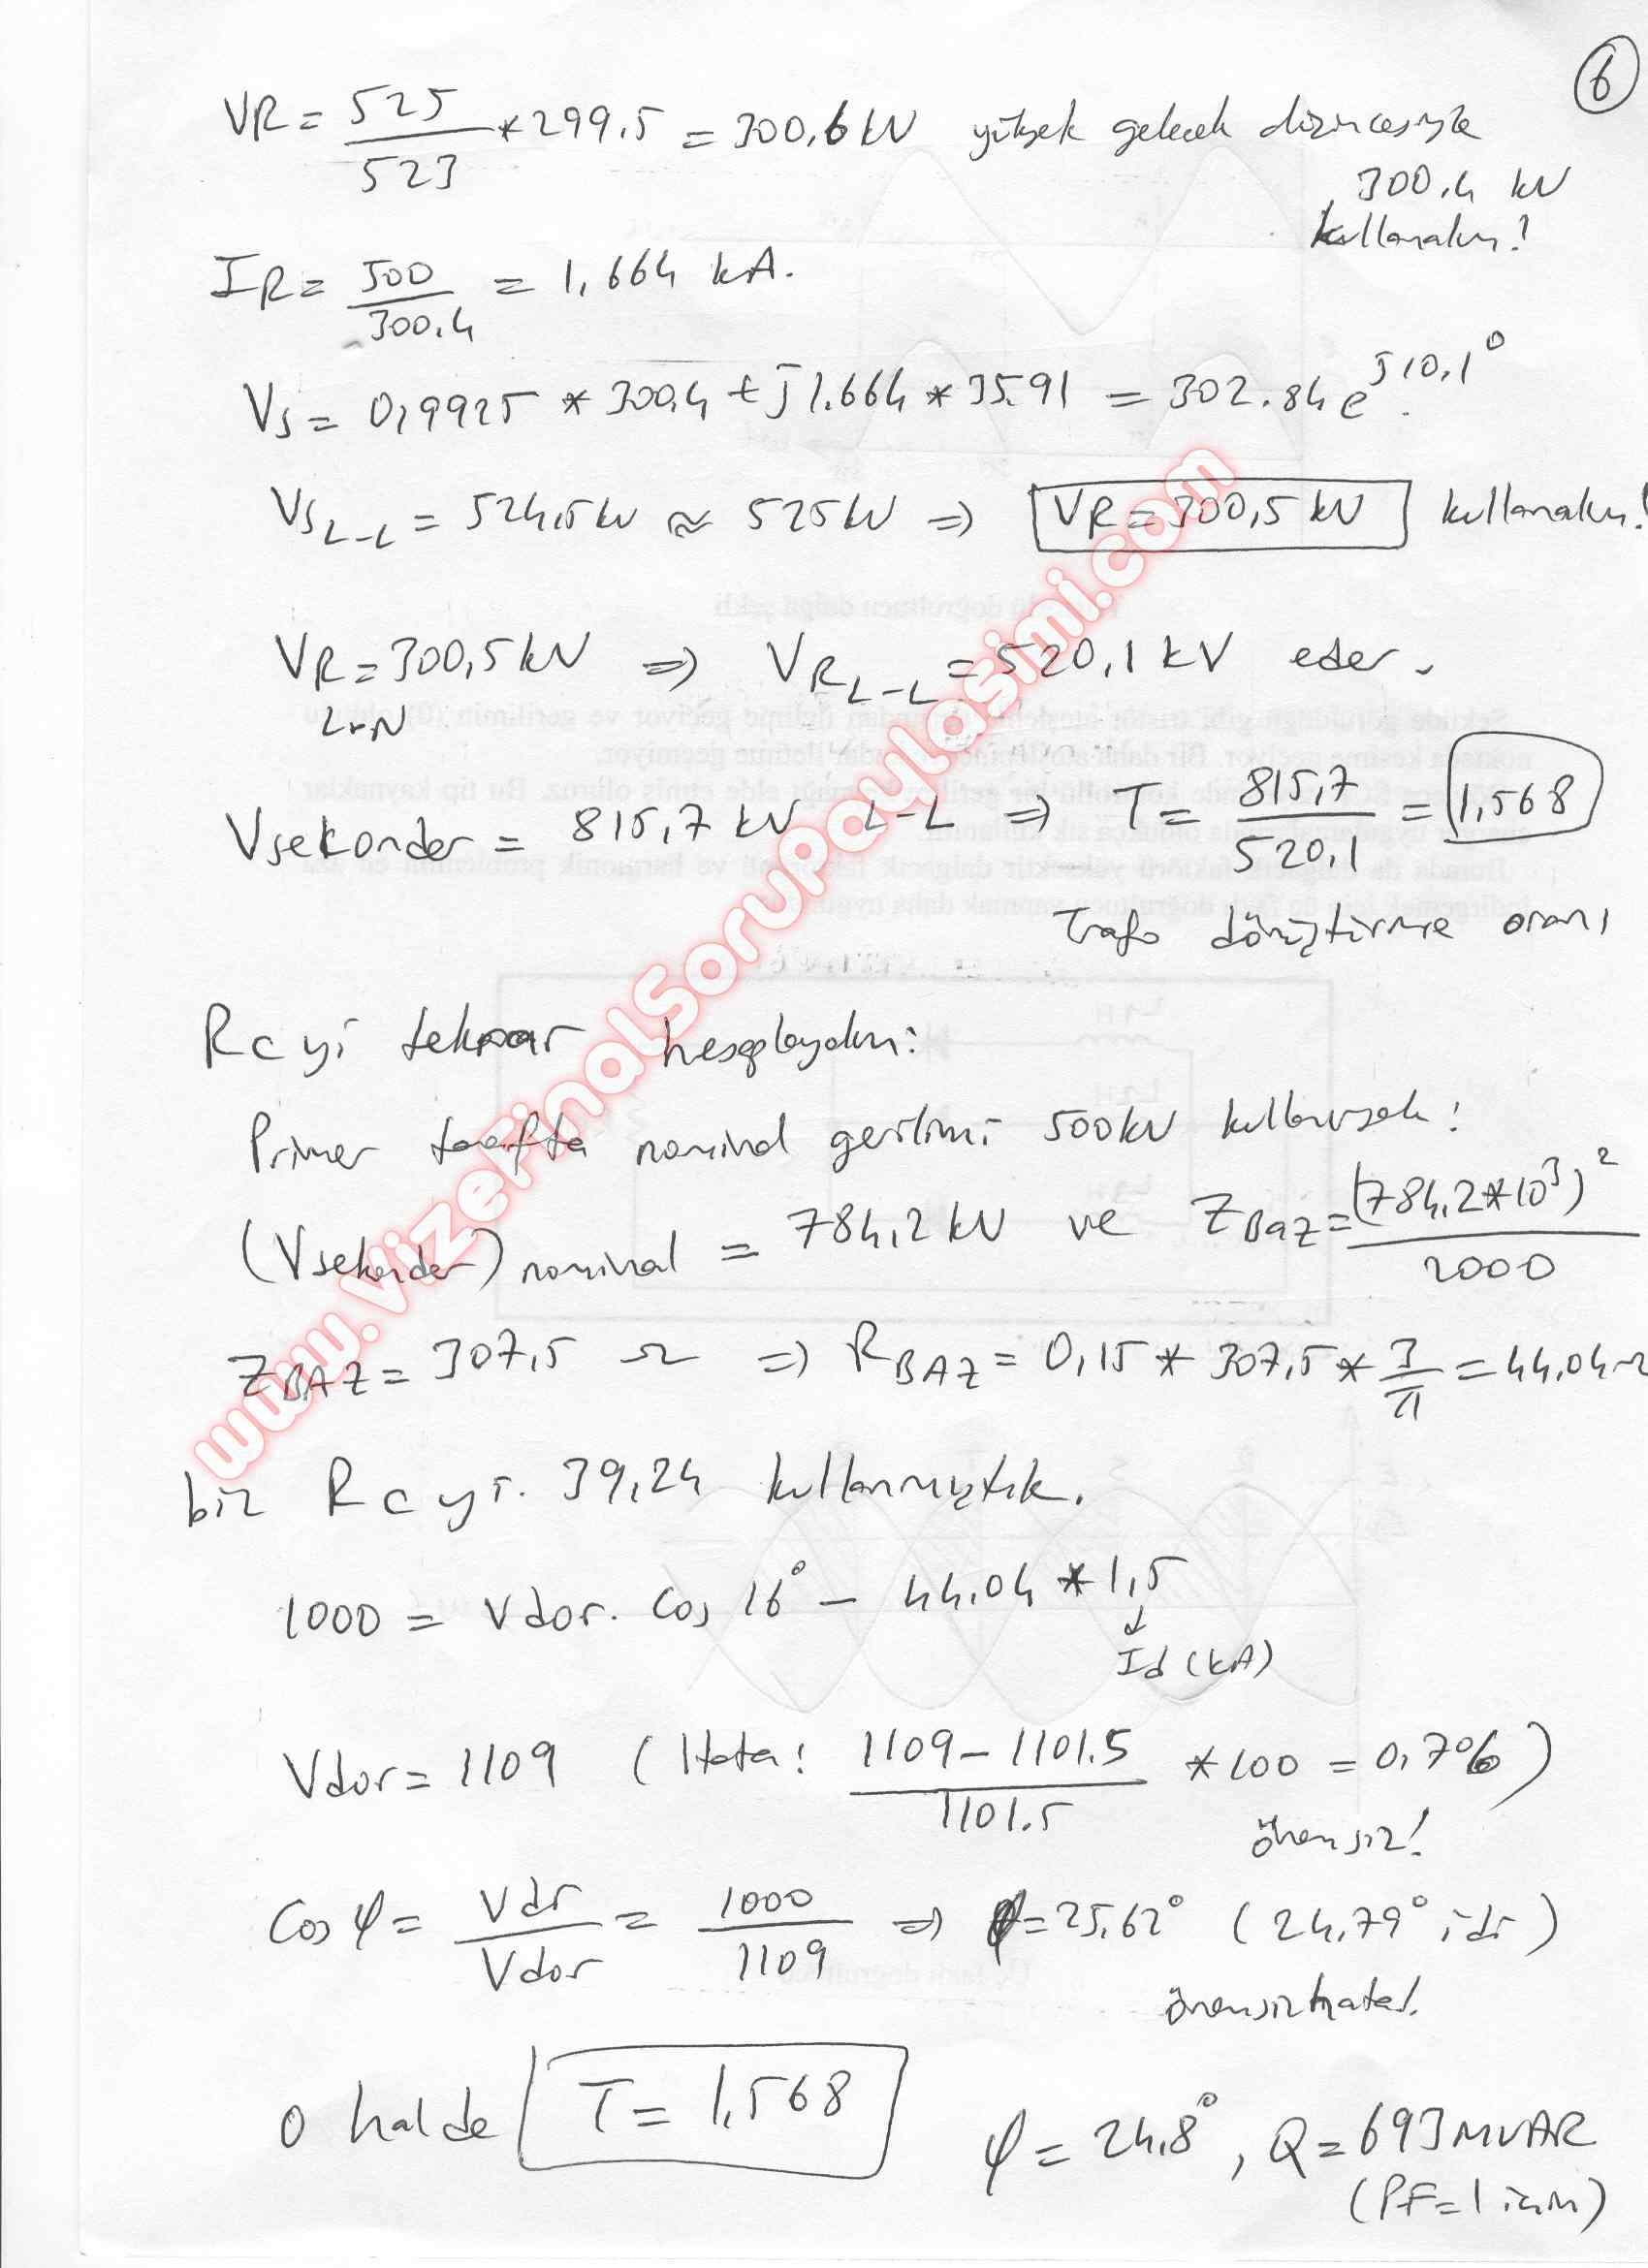 6
VR = 525/523 * 299,5 = 300,6 kV yüksek gelecek düşüncesiyle
300,4 kV
kullanalım!
IR = 500/300,4 = 1,664 kA.
Vs = 0,9925 * 300,4 + j1.664 * 35.91 = 302.84 e^j10,1°
VsL-L = 524,5 kV ≈ 525 kV ⇒ VR = 300,5 kV kullanalım!
VR = 300,5 kV ⇒ VR L-L = 520,1 kV eder.
L-N
Vsekonder = 815,7 kV L-L ⇒ T = 815,7/520,1 = 1,568
Trafo dönüştürme oranı
Rc yi tekrar hesaplayalım:
Primer tarafta nominal gerilimi 500kV kullanırsak:
(Vsekonder) nominal = 784,2 kV ve ZBaz = (784,2*10^3)^2/2000
ZBAZ = 307,5 Ω ⇒ RBAZ = 0,15 * 307,5 * 3/π = 44,04 Ω
biz Rc yi. 39,24 kullanmıştık.
1000 = Vdor. Cos 16° - 44,04 * 1,5
↓
Id (kA)
Vdor = 1109 (Hata: 1109 - 1101.5/1101.5 * 100 = 0,7%)
önemsiz!
Cos φ = Vdr/Vdor = 1000/1109 ⇒ φ = 25,62° (24,79° idi)
önemsiz hata!
O halde T = 1,568
φ = 24,8°, Q = 693 MVAR
(PF=1 için)
www.VizeFinalSoruPaylasimi.com